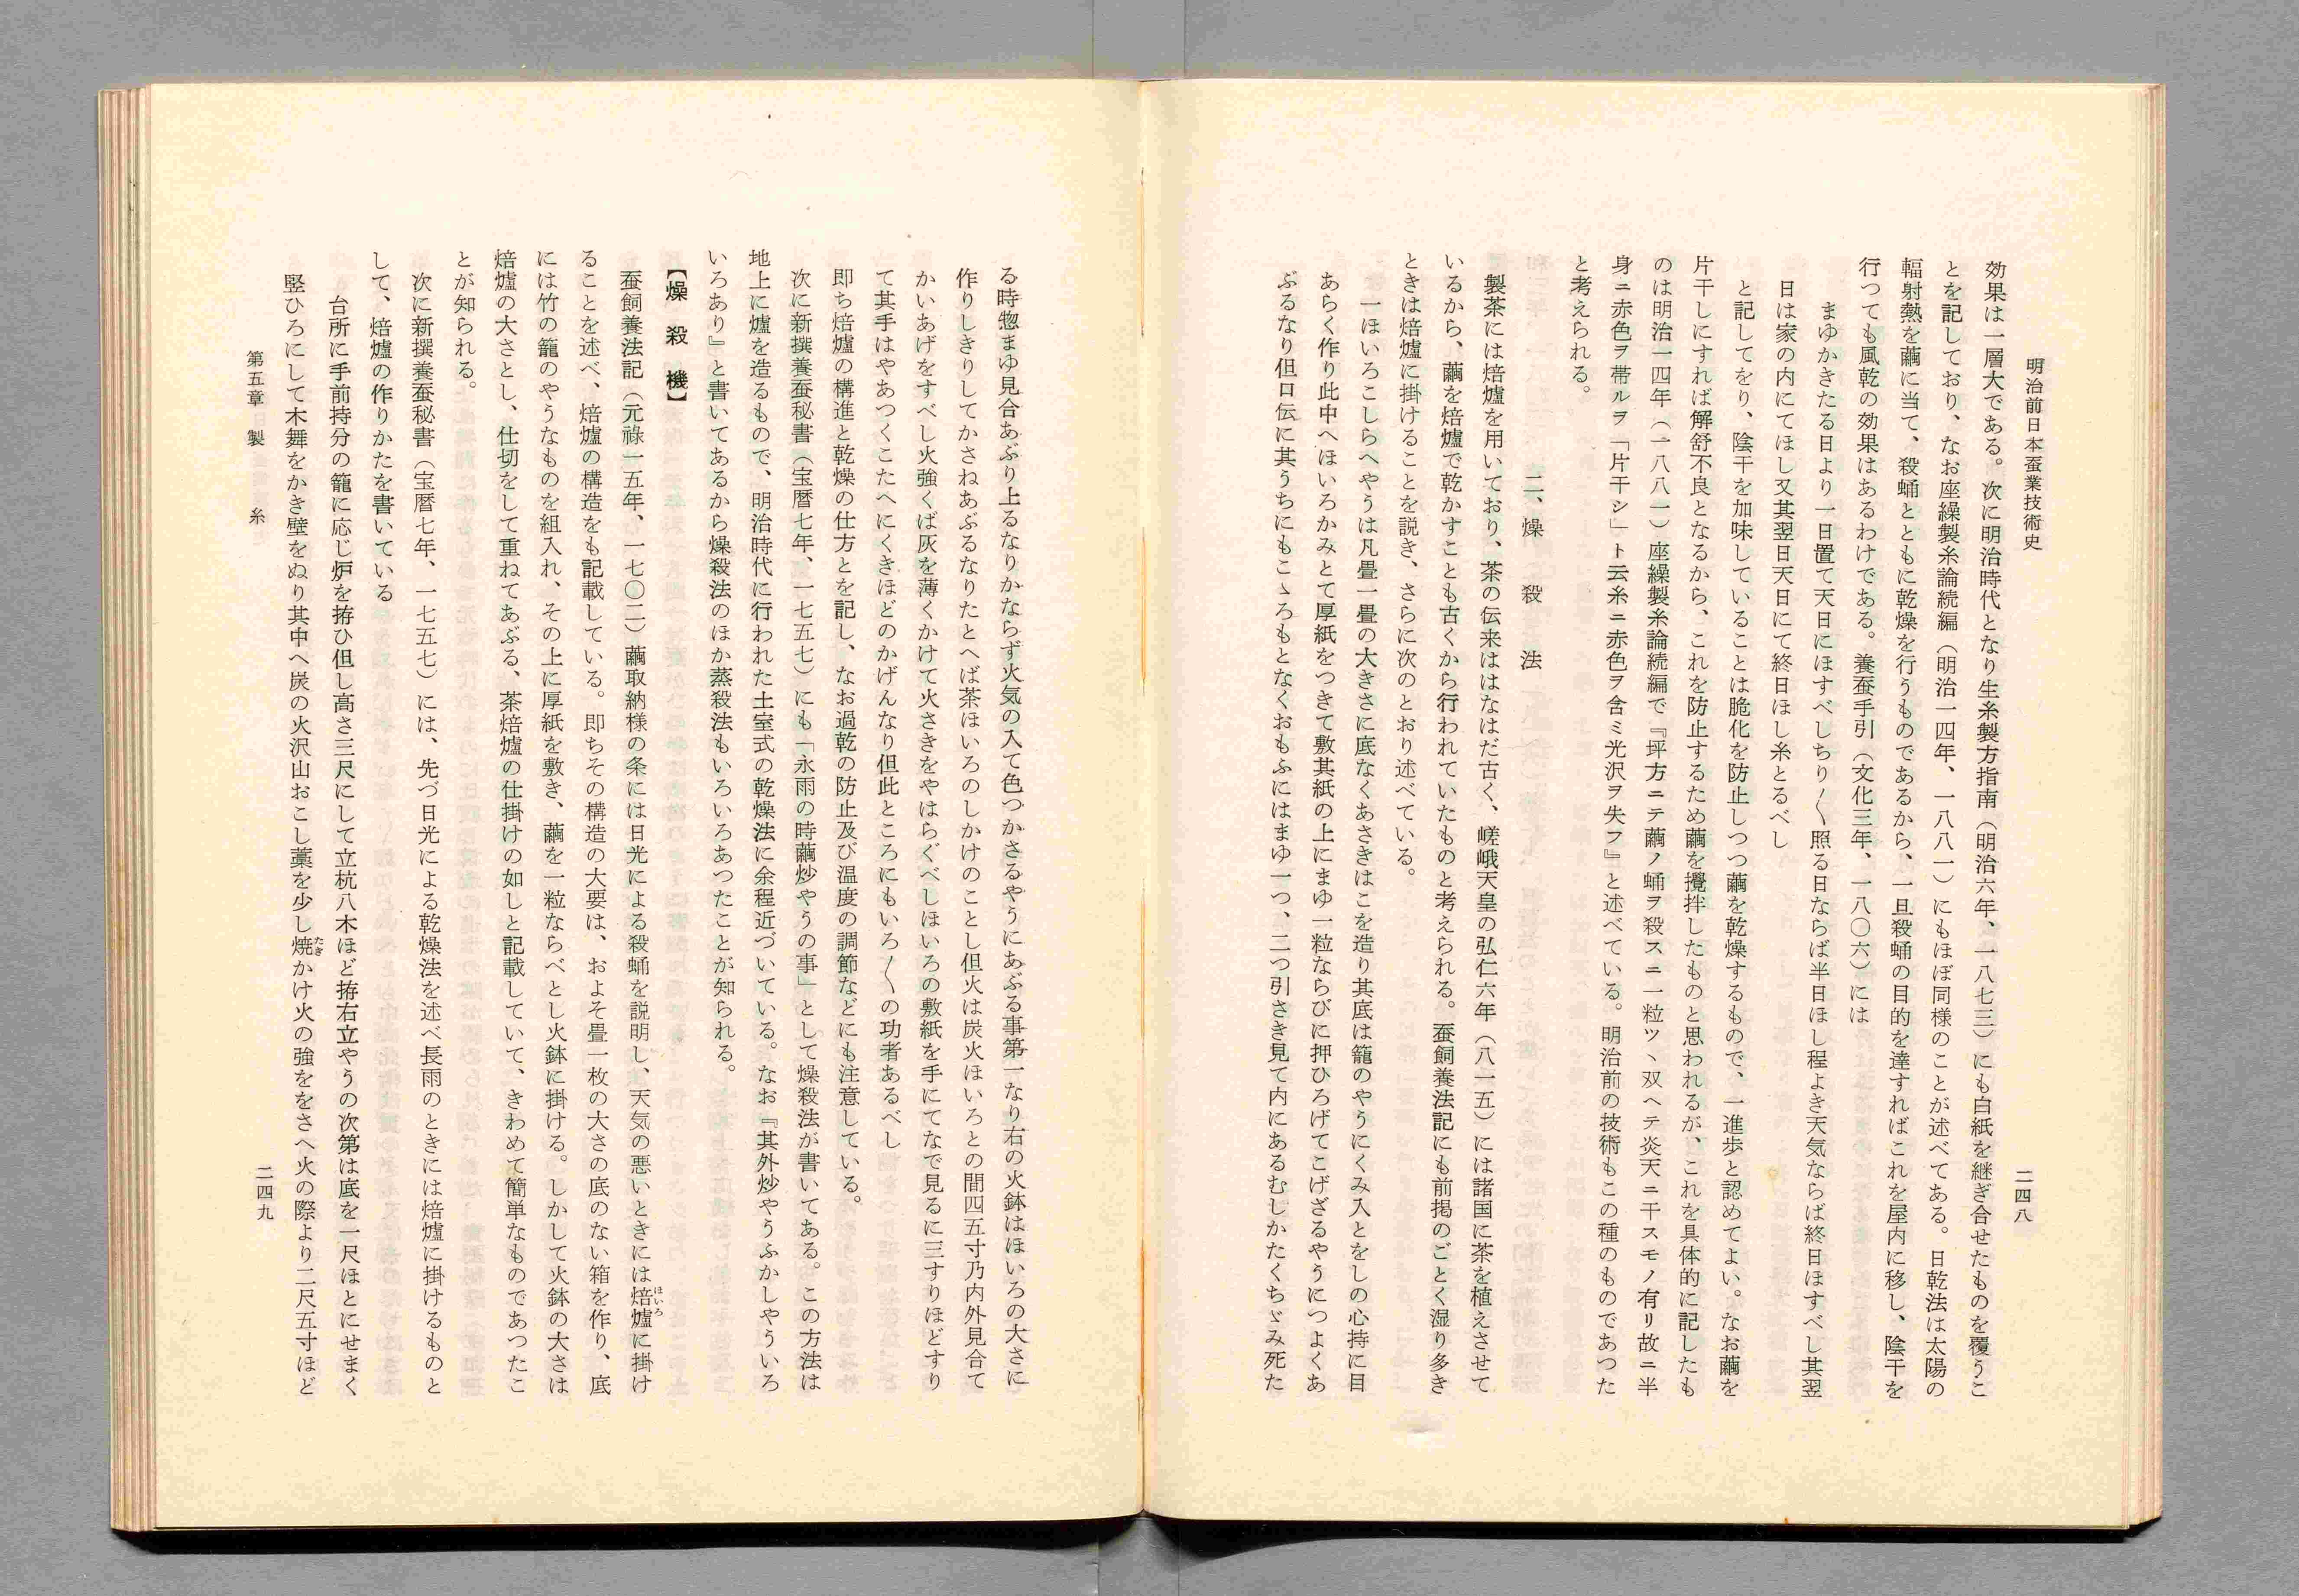 明治前日本蚕業技術史
二四八
効果は一層大である。次に明治時代となり生糸製方指南（明治六年、一八七三）にも白紙を継ぎ合せたものを覆うこ
とを記しており、なお座繰製糸論続編（明治一四年、一八八一）にもほぼ同様のことが述べてある。日乾法は太陽の
輻射熱を繭に当て、殺蛹とともに乾燥を行うものであるから、一旦殺蛹の目的を達すればこれを屋内に移し、陰干を
行つても風乾の効果はあるわけである。養蚕手引（文化三年、一八〇六）には
まゆかきたる日より一日置て天日にほすべしちり〱照る日ならば半日ほし程よき天気ならば終日ほすべし其翌
日は家の内にてほし又其翌日天日にて終日ほし糸とるべし
と記してをり、陰干を加味していることは脆化を防止しつつ繭を乾燥するもので、一進歩と認めてよい。なお繭を
片干しにすれば解舒不良となるから、これを防止するため繭を攪拌したものと思われるが、これを具体的に記したも
のは明治一四年（一八八一）座繰製糸論続編で『坪方ニテ繭ノ蛹ヲ殺スニ一粒ツヽ双ヘテ炎天ニ干スモノ有リ故ニ半
身ニ赤色ヲ帯ルヲ「片干シ」ト云糸ニ赤色ヲ含ミ光沢ヲ失フ』と述べている。明治前の技術もこの種のものであつた
と考えられる。
二、燥殺法
製茶には焙爐を用いており、茶の伝来ははなはだ古く、嵯峨天皇の弘仁六年（八一五）には諸国に茶を植えさせて
いるから、繭を焙爐で乾かすことも古くから行われていたものと考えられる。蚕飼養法記にも前掲のごとく湿り多き
ときは焙爐に掛けることを説き、さらに次のとおり述べている。
一ほいろこしらへやうは凡畳一畳の大きさに底なくあさきはこを造り其底は籠のやうにくみ入とをしの心持に目
あらく作り此中へほいろかみとて厚紙をつきて敷其紙の上にまゆ一粒ならびに押ひろげてこげざるやうにつよくあ
ぶるなり但口伝に其うちにもこゝろもとなくおもふにはまゆ一つ、二つ引さき見て内にあるむしかたくちゞみ死た
る時惣まゆ見合あぶり上るなりかならず火気の入て色つかさるやうにあぶる事第一なり右の火鉢はほいろの大さに
作りしきりしてかさねあぶるなりたとへば茶ほいろのしかけのことし但火は炭火ほいろとの間四五寸乃内外見合て
かいあげをすべし火強くば灰を薄くかけて火さきをやはらぐべしほいろの敷紙を手にてなで見るに三すりほどすり
て其手はやあつくこたへにくきほどのかげんなり但此ところにもいろ〱の功者あるべし
即ち焙爐の構進と乾燥の仕方とを記し、なお過乾の防止及び温度の調節などにも注意している。
次に新撰養蚕秘書（宝暦七年、一七五七）にも「永雨の時繭炒やうの事」として燥殺法が書いてある。この方法は
地上に爐を造るもので、明治時代に行われた土室式の乾燥法に余程近づいている。なお『其外炒やうふかしやういろ
いろあり』と書いてあるから燥殺法のほか蒸殺法もいろいろあつたことが知られる。
【燥殺機】
蚕飼養法記（元祿一五年、一七〇二）繭取納様の条には日光による殺蛹を説明し、天気の悪いときには焙爐に掛け
ほいろ
ることを述べ、焙爐の構造をも記載している。即ちその構造の大要は、およそ畳一枚の大さの底のない箱を作り、底
には竹の籠のやうなものを組入れ、その上に厚紙を敷き、繭を一粒ならべとし火鉢に掛ける。しかして火鉢の大さは
焙爐の大さとし、仕切をして重ねてあぶる、茶焙爐の仕掛けの如しと記載していて、きわめて簡単なものであつたこ
とが知られる。
次に新撰養蚕秘書（宝暦七年、一七五七）には、先づ日光による乾燥法を述べ長雨のときには焙爐に掛けるものと
して、焙爐の作りかたを書いている
台所に手前持分の籠に応じ炉を拵ひ但し高さ三尺にして立杭八木ほど拵右立やうの次第は底を一尺ほとにせまく
竪ひろにして木舞をかき壁をぬり其中へ炭の火沢山おこし藁を少し焼かけ火の強ををさへ火の際より二尺五寸ほど
たき
第五章　製糸
二四九